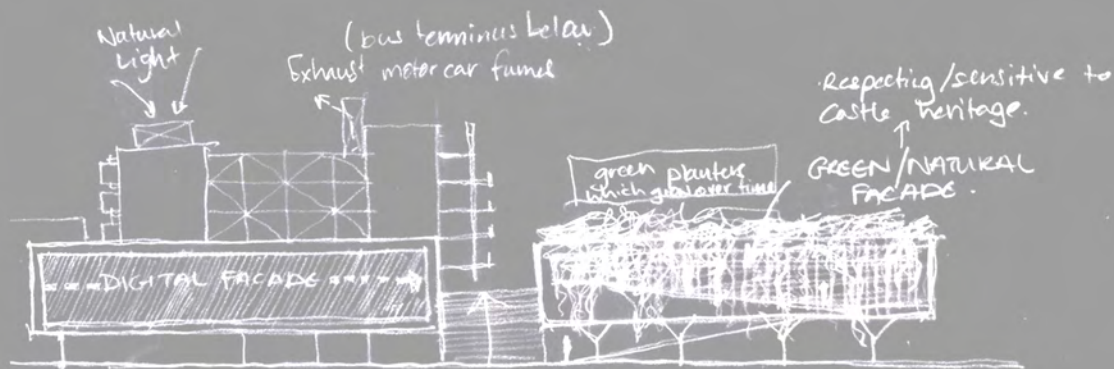 Natural
Light
(bus terminus below)
Exhaust motor car fumes
Respecting/sensitive to
castle heritage.
GREEN/NATURAL
FACADE.
green planters
which grow over time
DIGITAL FACADE